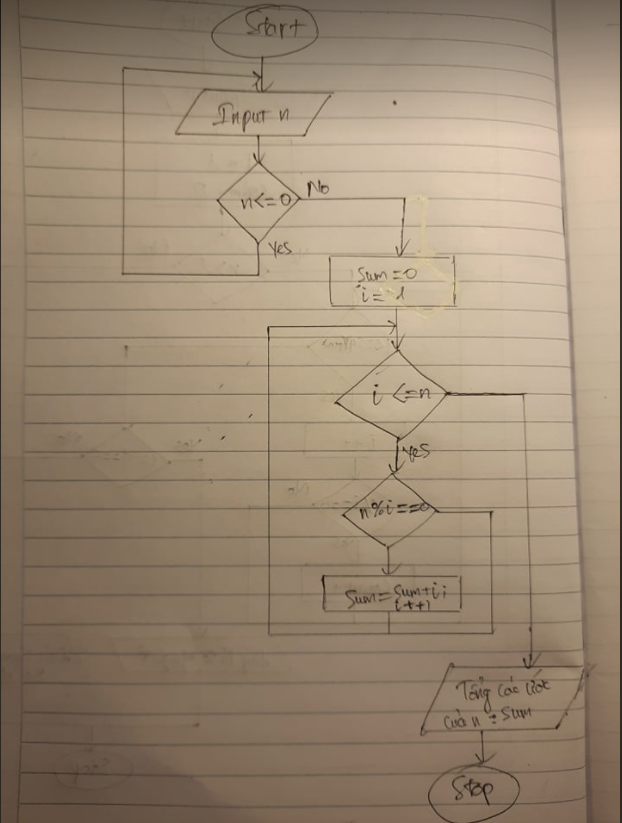 Start
Input n
n<=0
No
Yes
Sum=0
i=1
i <=n
Yes
n%i==0
Sum=Sum+i;
i++;
Tổng các ước
của n = Sum
Stop